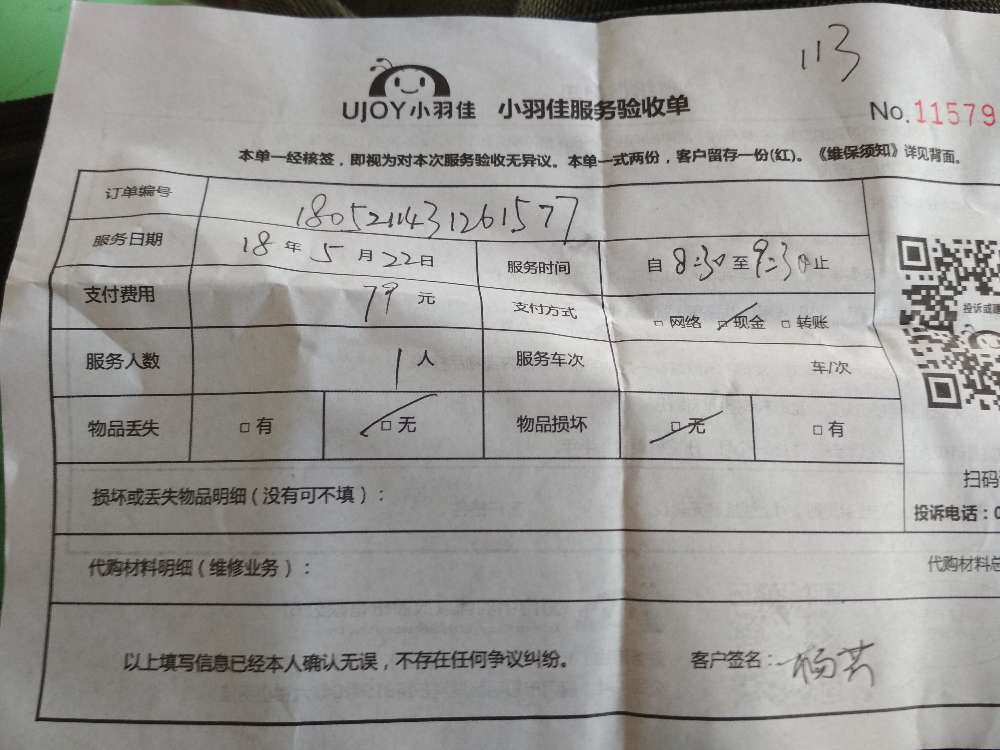 113
UJOY小羽佳 小羽佳服务验收单
No.11579
本单一经核签，即视为对本次服务验收无异议。本单一式两份，客户留存一份(红)。《维保须知》详见背面。
订单编号 180521431261577
服务日期 18年5月22日 服务时间 自8:30至9:30止
支付费用 79元 支付方式 □网络 □现金 □转账
投诉或建
服务人数 1人 服务车次 车/次
物品丢失 □有 □无 物品损坏 □无 □有
扫码
损坏或丢失物品明细（没有可不填）：
投诉电话：0
代购材料明细（维修业务）： 代购材料总
以上填写信息已经本人确认无误，不存在任何争议纠纷。 客户签名：杨芸